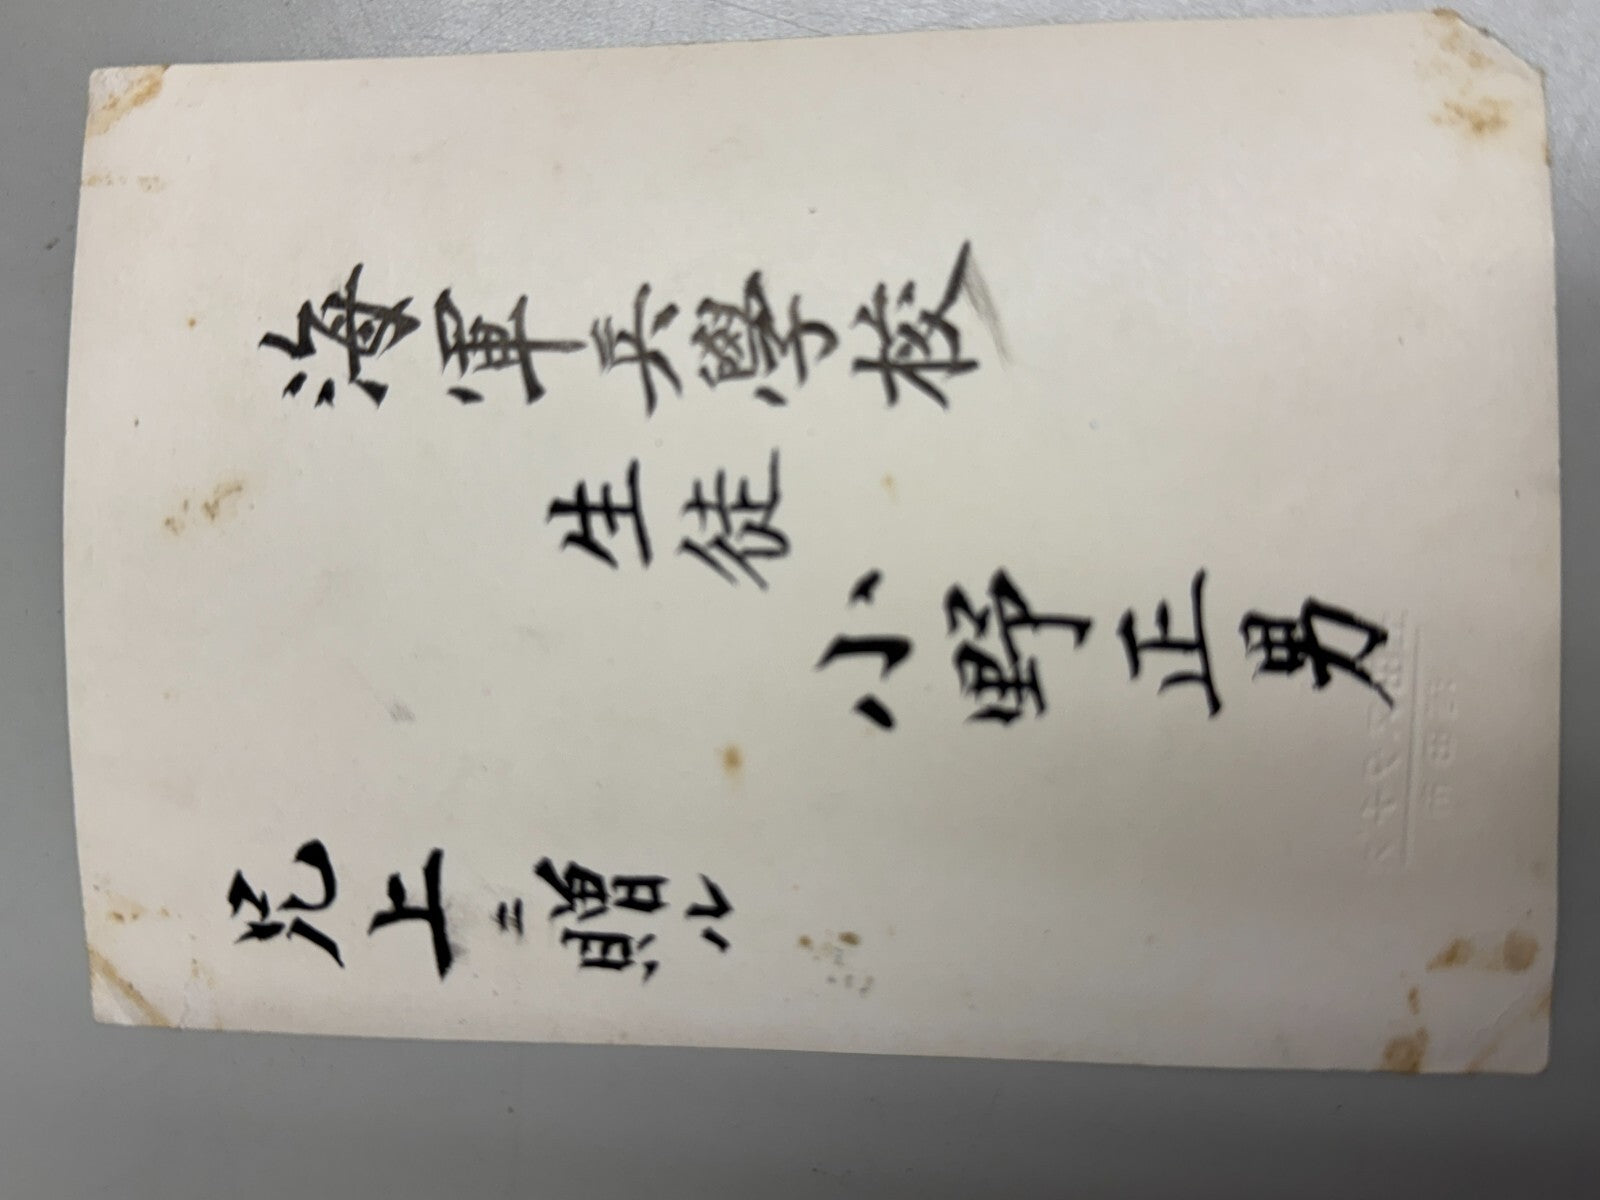 海軍兵學校
生徒
小野正男
兄上ニ贈ル